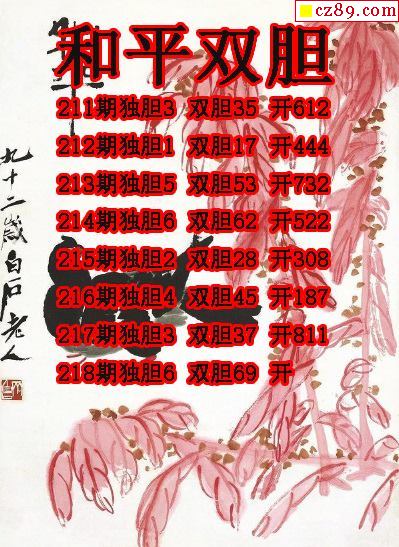 cz89.com
和平双胆
211期独胆3 双胆35 开612
212期独胆1 双胆17 开444
213期独胆5 双胆53 开732
214期独胆6 双胆62 开522
215期独胆2 双胆28 开308
216期独胆4 双胆45 开187
217期独胆3 双胆37 开811
218期独胆6 双胆69 开
九十二歲白石老人